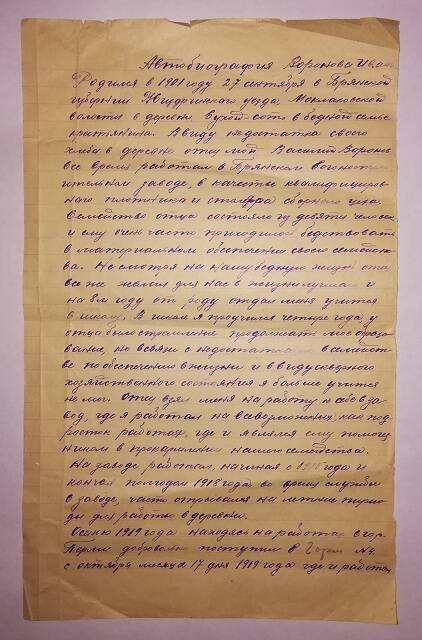 Автобиография Воронова Иван
Родился в 1901 году 27 сентября в Брянской
губернии Жиздринского уезда, Маклаковской
волости в деревни Сухой-сот в бедной семье
крестьянина. Ввиду недостатка своего
хлеба в деревне отец мой Василий Воронов
все время работал в Брянском вагоностро
ительном заводе, в качестве квалифициров
наго плотника и столяра сборного цеха.
Семейство отца состояло из девяти человек
и ему очень часто приходилось бедствовать
в материальном обеспечении своего семейст
ва. Не смотря на нашу бедную жизнь отец
все же желал для нас в жизни лучшаго и
на 8м году от роду отдал меня учится
в школу. В школе я проучился четыре года, у
отца было стремление продолжать мое образо
вание, но в связи с недостатками в семейст
ве по обеспечению в жизни и ввиду скверного
хозяйственного состояния я больше учится
не мог. Отец взял меня на работу к себе в за
вод, где я работал на всевозможных, как под
росток работах, где и являлся ему помощ
ником в прокормлении нашего семейства.
На заводе работал, начиная с года и
кончая полгодом 1918 года во время службы
в заводе, часто отпускался на летние перио
ды для работы в деревни.
Осенью 1919 года находясь на работах в гор.
Перми добровольно поступил в №4.
с октября месяца 17 дня 1919 года где и работал